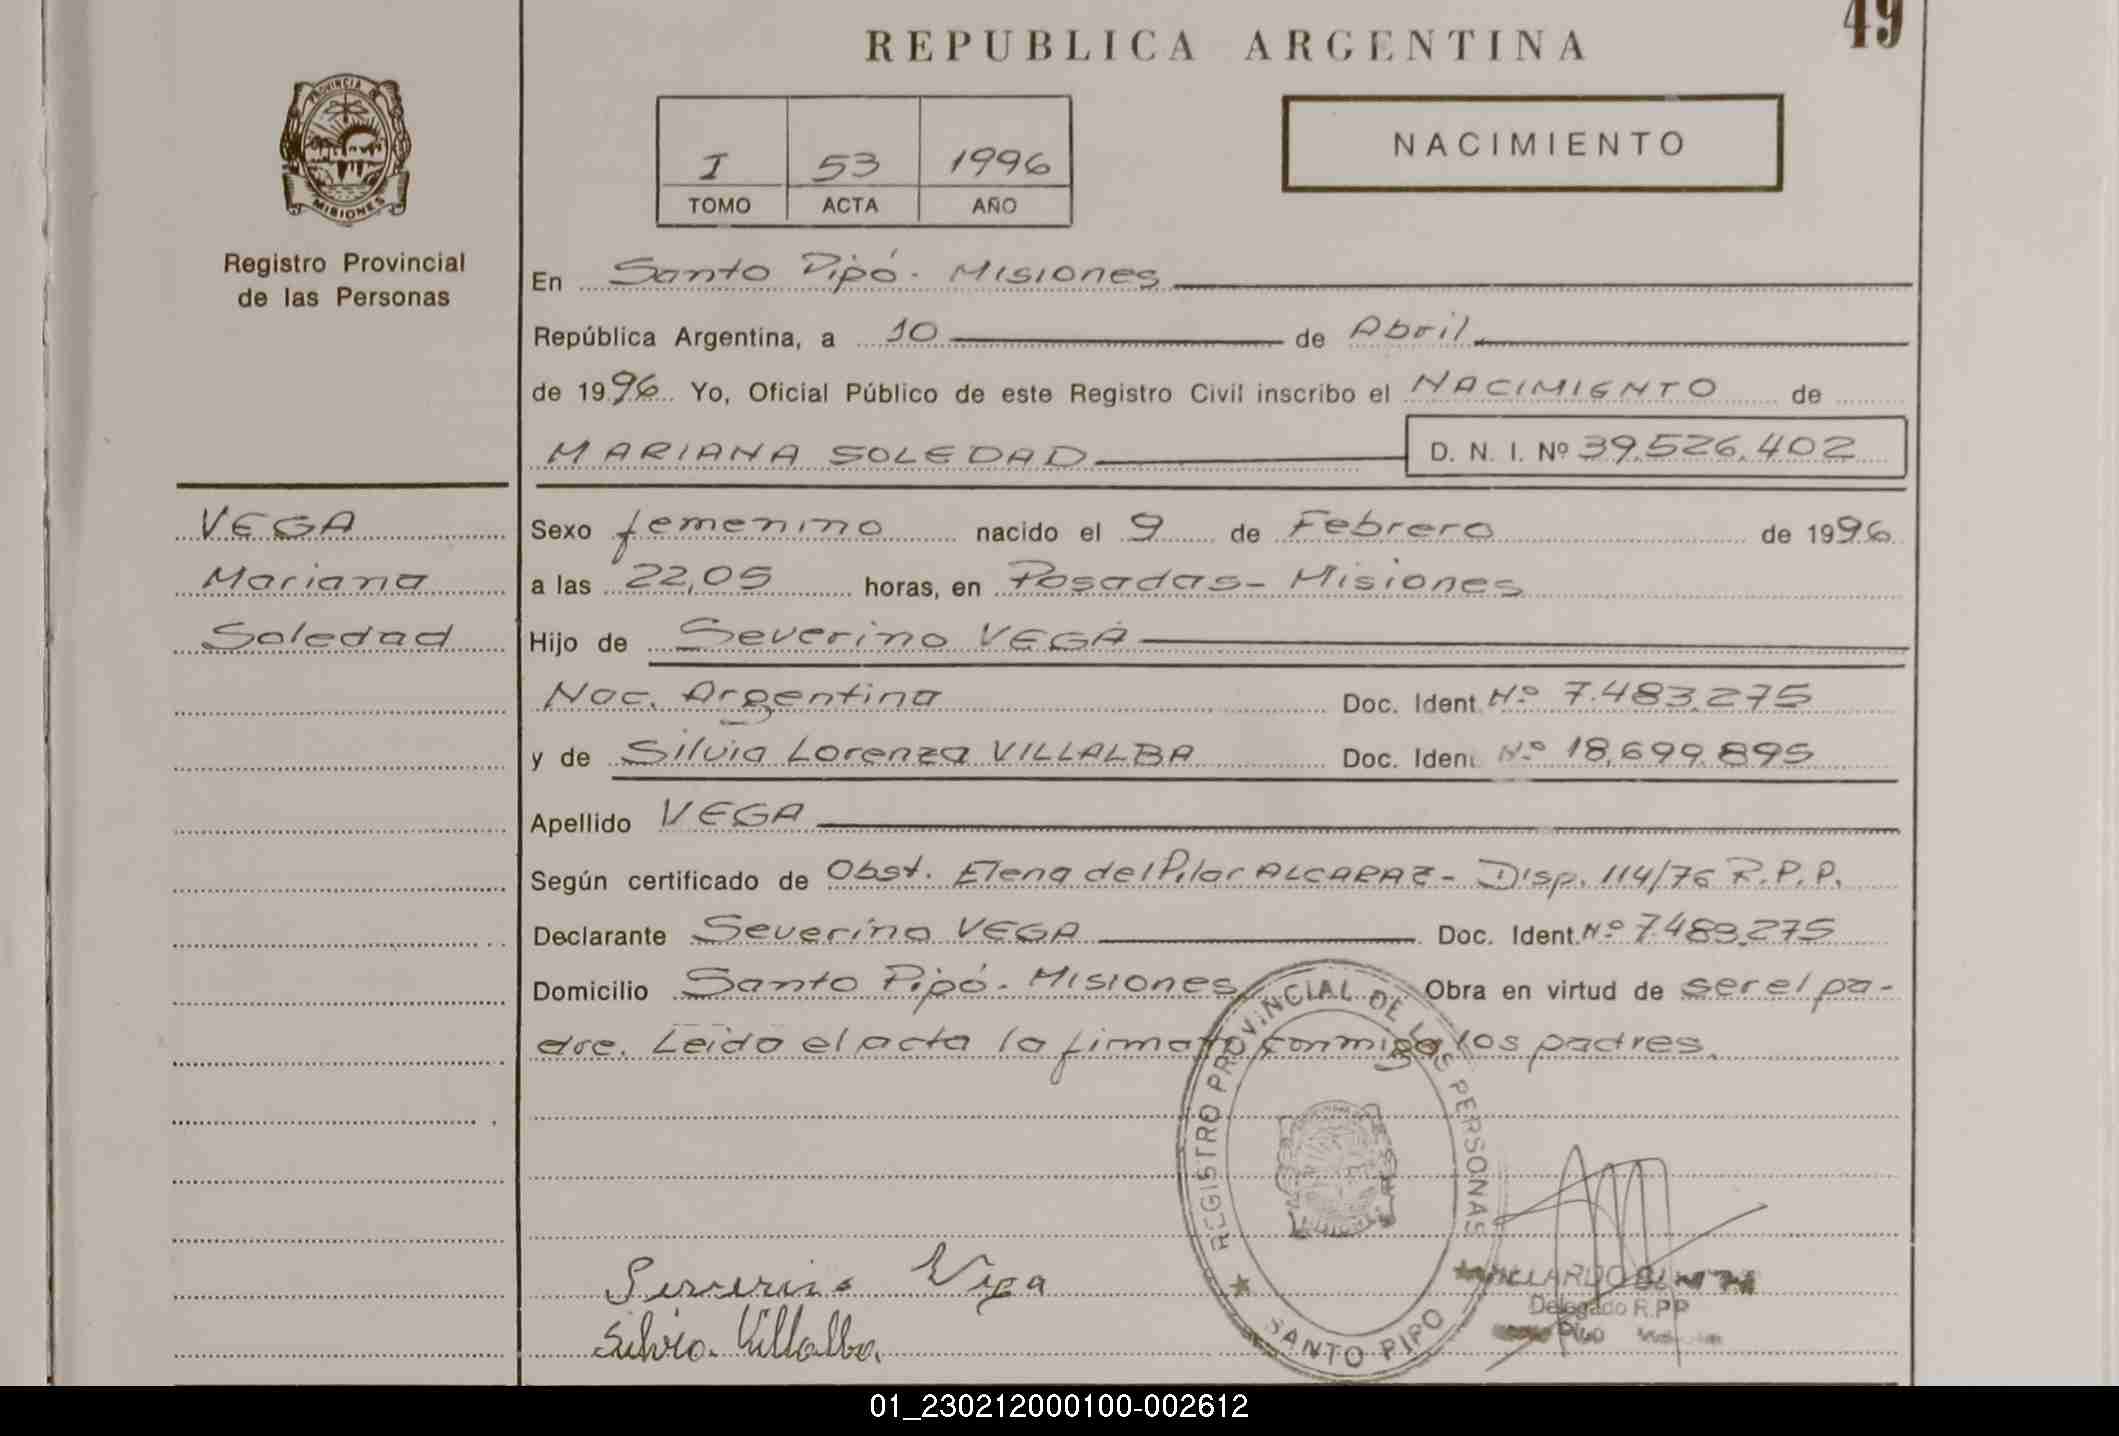 49
REPUBLICA ARGENTINA
PROVINCIA DE
MISIONES
Registro Provincial
de las Personas
I 53 1996
TOMO ACTA AÑO
NACIMIENTO
En Santo Pipó - Misiones
República Argentina, a 10 de Abril
de 1996 Yo, Oficial Público de este Registro Civil inscribo el NACIMIENTO de
MARIANA SOLEDAD D. N. I. Nº 39.526.402
VEGA
Mariana
Soledad
Sexo femenino nacido el 9 de Febrero de 1996
a las 22,05 horas, en Posadas - Misiones
Hijo de Severino VEGA
Nac. Argentina Doc. Ident. Nº 7.483.275
y de Silvia Lorenza VILLALBA Doc. Ident. Nº 18.699.895
Apellido VEGA
Según certificado de Obst. Elena del Pilar ALCARAZ - Disp. 114/76 R.P.P.
Declarante Severino VEGA Doc. Ident. Nº 7.483.275
Domicilio Santo Pipó - Misiones Obra en virtud de ser el pa-
dre. Leida el acta la firman conmigo los padres.
REGISTRO PROVINCIAL DE LAS PERSONAS
SANTO PIPO
Severino Vega
Silvia Villalba
Delegado R.P.P
01_230212000100-002612